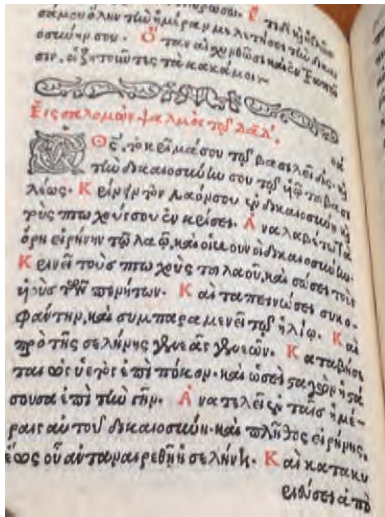 Ἔτι δὲ ἡ γλῶσ
σά μου ὅλην τὴν ἡμέραν μελετήσει τὴν δικαι
οσύνην σου. Ὅταν αἰσχυνθῶσι καὶ ἐντραπῶ
σιν, οἱ ζητοῦντες τὰ κακά μοι.
Εἰς σαλομὼν ψαλμὸς τῷ δαδ.
Ὁ Θς, τὸ κρῖμά σου τῷ βασιλεῖ δὸς, καὶ
τὴν δικαιοσύνην σου τῷ υἱῷ τοῦ βασι
λέως. Κρίνειν τὸν λαόν σου ἐν δικαιοσύνῃ καὶ
τοὺς πτωχούς σου ἐν κρίσει. Ἀναλαβέτω τὰ
ὄρη εἰρήνην τῷ λαῷ, καὶ οἱ βουνοὶ δικαιοσύνην.
Κρινεῖ τοὺς πτωχοὺς τοῦ λαοῦ, καὶ σώσει τοὺς
υἱοὺς τῶν πενήτων. Καὶ ταπεινώσει συκο
φάντην, καὶ συμπαραμενεῖ τῷ ἡλίῳ. Καὶ
πρὸ τῆς σελήνης γενεὰς γενεῶν. Καταβήσε
ται ὡς ὑετὸς ἐπὶ πόκον. καὶ ὡσεὶ σταγὼν ἡ στά
ζουσα ἐπὶ τὴν γῆν. Ἀνατελεῖ ἐν ταῖς ἡμέ
ραις αὐτοῦ δικαιοσύνη. καὶ πλῆθος εἰρήνης,
ἕως οὗ ἀνταναιρεθῇ ἡ σελήνη. Καὶ κατακυ
ριεύσει ἀπὸ